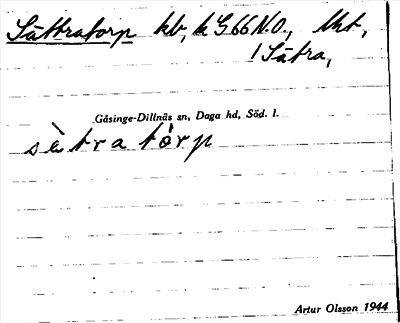 Sättratorp hv, k G 66 N.O., Uht,
1 Sätra,
Gåsinge-Dillnäs sn, Daga hd, Söd. l.
sètratórp
Artur Olsson 1944